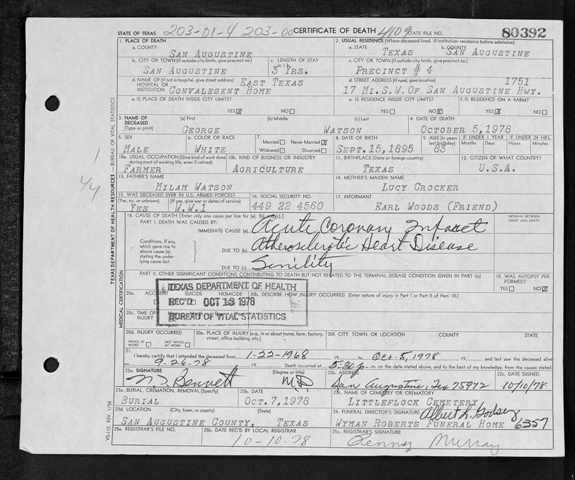 STATE OF TEXAS 203-01-4 203-00 CERTIFICATE OF DEATH 4109 STATE FILE NO. 80392
1. PLACE OF DEATH 2. USUAL RESIDENCE
a. COUNTY SAN AUGUSTINE a. STATE TEXAS b. COUNTY SAN AUGUSTINE
b. CITY OR TOWN (If outside city limits, give precinct no.) c. LENGTH OF STAY c. CITY OR TOWN (If outside city limits, give precinct no.)
SAN AUGUSTINE 5 YRS. PRECINCT # 4
d. NAME OF HOSPITAL OR INSTITUTION EAST TEXAS CONVALESENT HOME d. STREET ADDRESS 1751
17 MI.S.W.OF SAN AUGUSTINE HWY.
e. IS PLACE OF DEATH INSIDE CITY LIMITS? YES NO e. IS RESIDENCE INSIDE CITY LIMITS? YES NO f. IS RESIDENCE ON A FARM? YES NO
3. NAME OF DECEASED (Type or print) (a) First (b) Middle (c) Last 4. DATE OF DEATH
GEORGE WATSON OCTOBER 5,1978
5. SEX 6. COLOR OR RACE 7. Married Never Married Widowed Divorced 8. DATE OF BIRTH
MALE WHITE SEPT.15,1895 83
10a. USUAL OCCUPATION 10b. KIND OF BUSINESS OR INDUSTRY 11. BIRTHPLACE (State or foreign country) 12. CITIZEN OF WHAT COUNTRY?
FARMER AGRICULTURE TEXAS U.S.A.
13. FATHER'S NAME 14. MOTHER'S MAIDEN NAME
MILAM WATSON LUCY CROCKER
15. WAS DECEASED EVER IN U.S. ARMED FORCES? 16. SOCIAL SECURITY NO. 17. INFORMANT
YES W.W.I 449 22 4560 EARL WOODS (FRIEND)
18. CAUSE OF DEATH
PART I. DEATH WAS CAUSED BY:
IMMEDIATE CAUSE (a) Acute Coronary Infarct
DUE TO (b) Atherosclerotic Heart Disease
DUE TO (c) Senility
PART II. OTHER SIGNIFICANT CONDITIONS CONTRIBUTING TO DEATH BUT NOT RELATED TO THE TERMINAL DISEASE CONDITION GIVEN IN PART I(a) 19. WAS AUTOPSY PERFORMED?
TEXAS DEPARTMENT OF HEALTH
REC'D OCT 13 1978
BUREAU OF VITAL STATISTICS
20b. DESCRIBE HOW INJURY OCCURRED
20d. INJURY OCCURRED 20e. PLACE OF INJURY 20f. CITY, TOWN, OR LOCATION COUNTY STATE
21. I hereby certify that I attended the deceased from 1-22-1968 Oct. 5, 1978
9-26-78
22a. SIGNATURE (Degree or title) 22b. ADDRESS 22c. DATE SIGNED
N. J. Bennett M.D San Augustine, Tex 75972 10/10/78
23a. BURIAL, CREMATION, REMOVAL (Specify) 23b. DATE 23c. NAME OF CEMETERY OR CREMATORY
BURIAL OCT.7,1978 LITTLEFLOCK CEMETERY
23d. LOCATION (City, town, or county) (State) 24. FUNERAL DIRECTOR'S SIGNATURE
SAN AUGUSTINE COUNTY, TEXAS WYMAN ROBERTS FUNERAL HOME 6357
25a. REGISTRAR'S FILE NO. 25b. DATE REC'D BY LOCAL REGISTRAR 25c. REGISTRAR'S SIGNATURE
10-10-78 Murray
TEXAS DEPARTMENT OF HEALTH RESOURCES BUREAU OF VITAL STATISTICS
MEDICAL CERTIFICATION